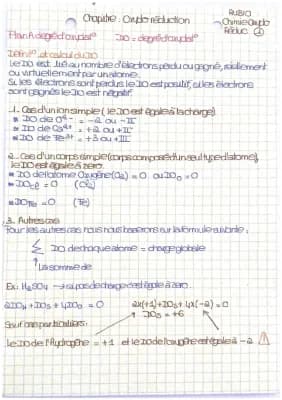 Chapitre : Oxydo réduction
RUBIO
Chimie Oxydo
Réduc. ①
Plan A degré d'oxydat° DO = degré d'oxydat°
Définit° et calcul du DO
Le DO est lié au nombre d'électrons perdu ou gagné, réellement
ou virtuellement par un atome.
Si les électrons sont perdus le DO est positif, si les électrons
sont gagnés le DO est négatif.
1. Cas d'un ion simple (le DO est égale à la charge)
DO de O²⁻ = -2 ou -II
DO de Cu²⁺ = +2 ou +II
DO de Fe³⁺ = +3 ou +III
2. Cas d'un corps simple (corps composé d'un seul type d'atome),
le DO est égale à zero.
DO de l'atome Oxygène (O₂) = 0 ou DO₀ = 0
DO = 0 (Cl₂)
DO Fe = 0 (Fe)
3. Autres cas
Pour les autres cas nous nous baserons sur la formule suivante :
Σ DO de chaque atome = charge globale
↑ La somme de
Ex : H₂SO₄ → si pas de charge c'est égale à zero.
2DO H + DO S + 4DO O = 0 2x(+1)+DO S + 4x(-2) = 0
DO S = +6
Sauf cas particuliers :
Le DO de l'Hydrogène = +1 et le DO de l'oxygène est égale à -2 ⚠